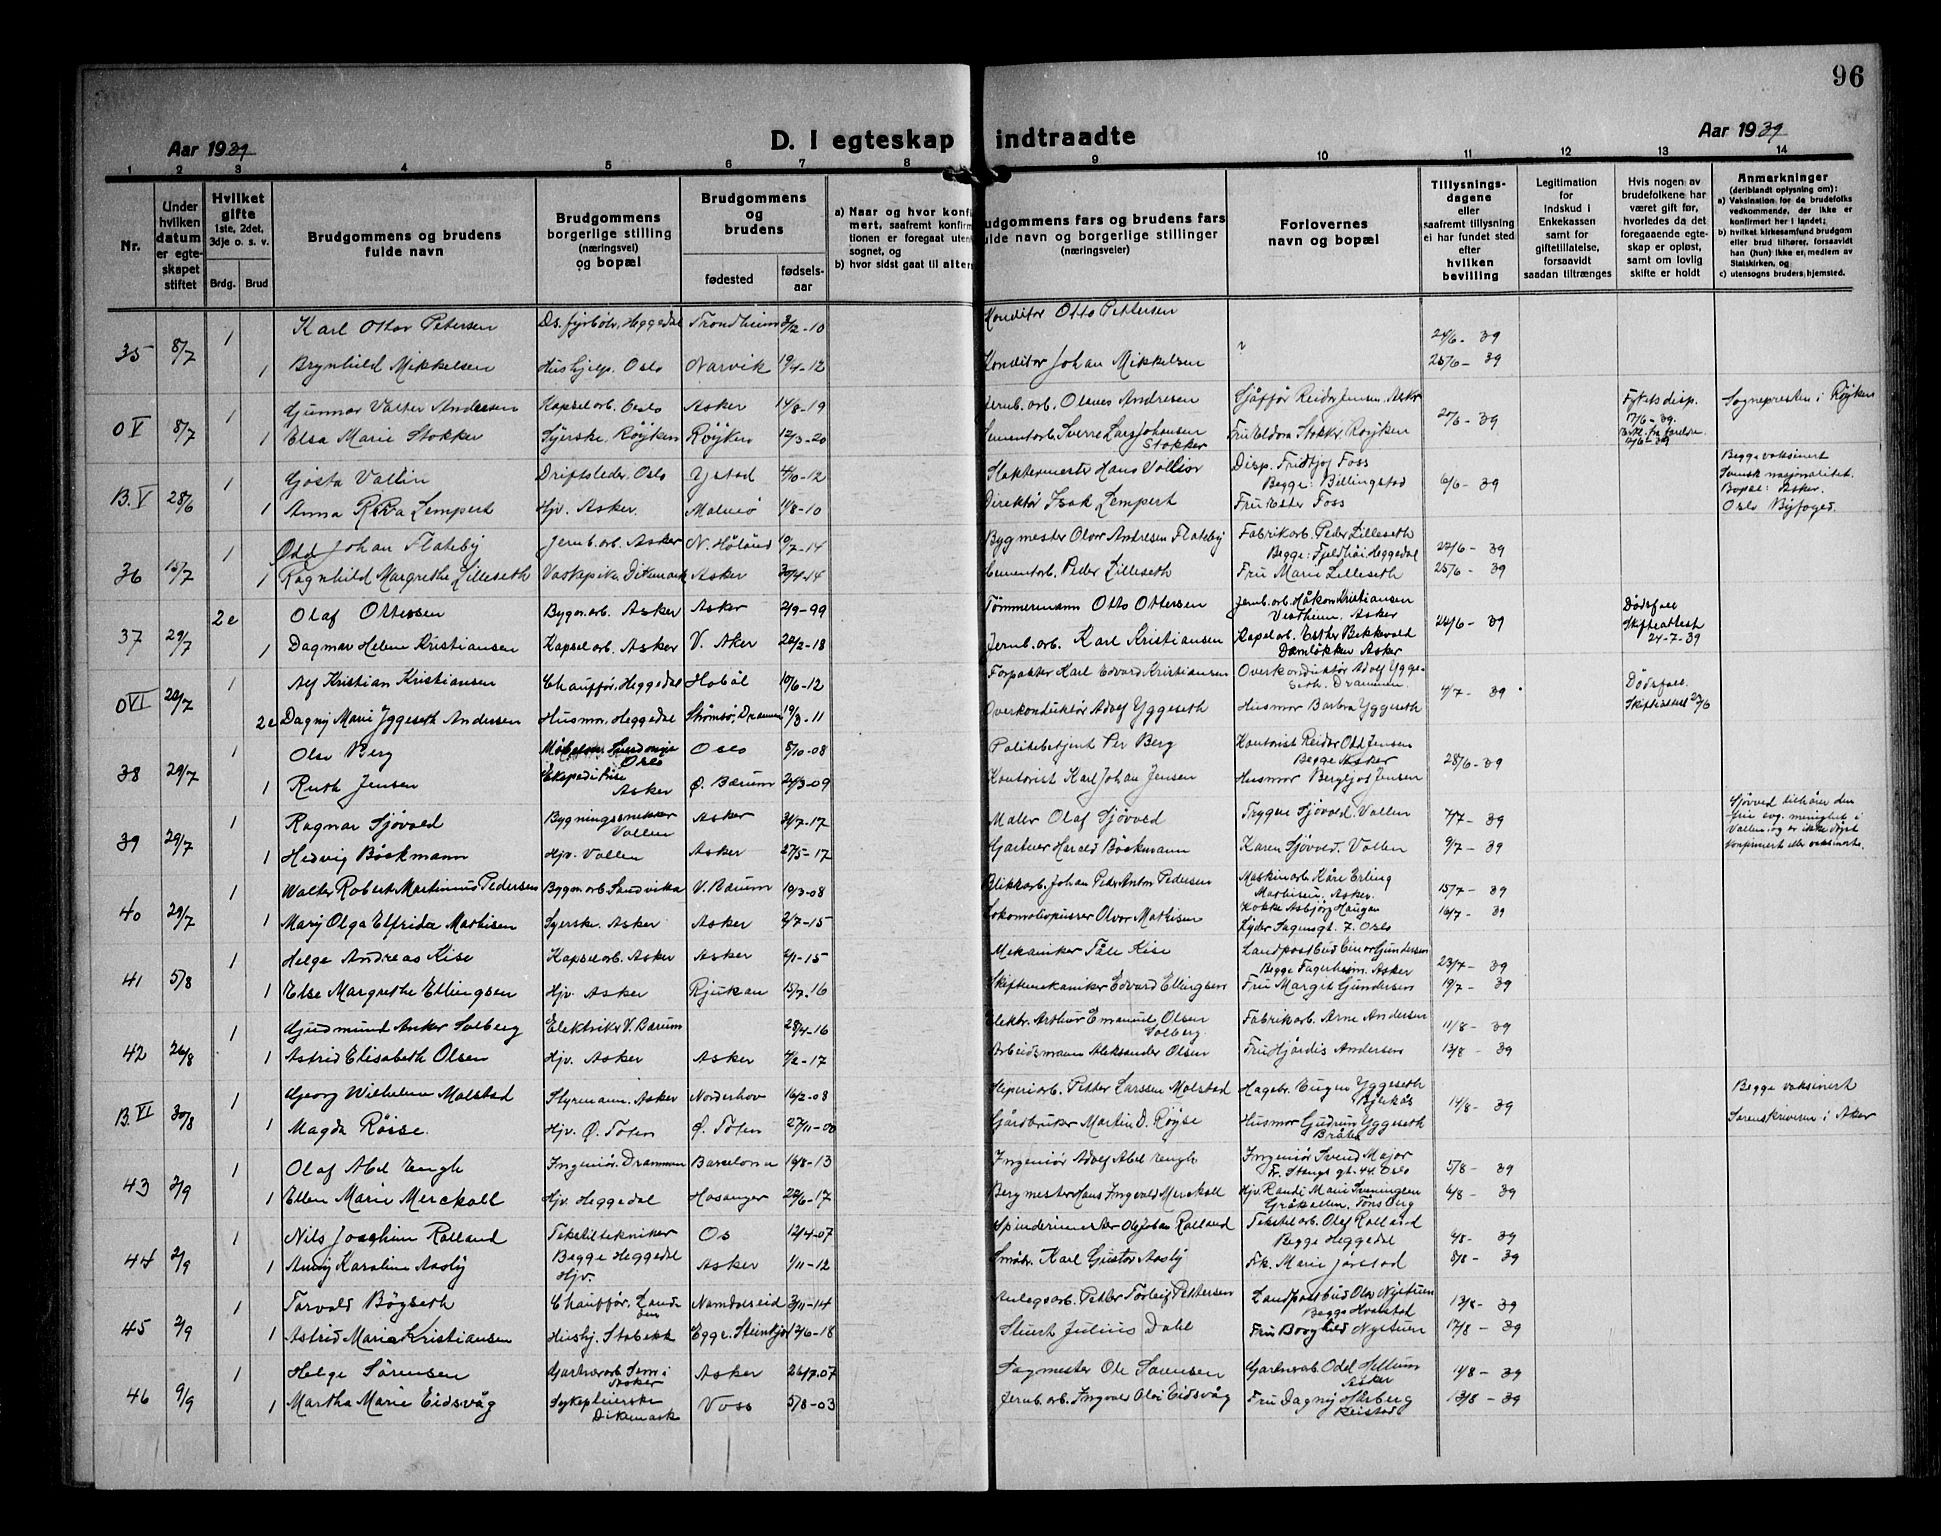 96
Aar 1939
D. I egteskap indtraadte
Aar 1939
1 2 3 4 5 6 7 8 9 10 11 12 13 14
Nr.
Under hvilken datum er egteskapet stiftet
Hvilket gifte 1ste, 2det, 3dje o. s. v.
Brdg. Brud
Brudgommens og brudens fulde navn
Brudgommens borgerlige stilling (næringsvei) og bopæl
Brudgommens og brudens
fødested fødselsaar
a) Naar og hvor konfirmert, saafremt konfirmtionen er foregaat utenfor sognet, og
b) hvor sidst gaat til alters
udgommens fars og brudens fars fulde navn og borgerlige stillinger (næringsveier)
Forlovernes navn og bopæl
Tillysningsdagene eller saafremt tillysning ei har fundet sted efter hvilken bevilling
Legitimation for Indskud i Enkekassen samt for giftetillatelse, forsaavidt saadan tiltrænges
Hvis nogen av brudefolkene har været gift før, hvorledes da det foregaaende egteskap er opløst, samt om lovlig skifte er holdt
Anmerkninger (deriblandt oplysning om):
a) Vaksination for de brudefolks vedkommende, der ikke er konfirmert her i landet;
b) hvilket kirkesamfund brudgom eller brud tilhører, forsaavidt han (hun) ikke er medlem av Statskirken, og
c) utensogns bruders hjemsted.
35 8/7 1 Karl Otto Petersen Ds. fyrbøter, Heggedal Trondheim 3/12-10 Konditor Otto Pettersen 24/6-39
1 Brynhild Mikkelsen Hushjelp. Oslo Narvik 19/4-12 Konditor Johan Mikkelsen ? 25/6-39
O V 8/7 1 Gunnar Valter Andersen Kapselarb. Oslo Asker 14/8-19 Jernb. arb. Olaves Andresen Sjåffør Reidar Jensen Asker 27/6-39 Fylkets disp. 17/6-39. Sognepresten i Røyken
1 Elsa Marie Stokker Syerske, Røyken Røyken 12/3-20 Sementarb. Sverre Lars Johansen Stokker Fru Eldora Stokker Røyken
B. V 28/6 1 Gösta Vallin Driftsleder, Oslo Ystad 4/10-12 Slaktermester Hans Vallin Disp. Fridtjof Foss Begge: Billingstad 6/6-39 Begge vaksinert Svensk nasjonalitet. Bopæl: Asker.
1 Anna Lempert Hjv. Asker. Malmö 14/8-10 Direktør Isak Lempert Fru Ester Foss Oslo Byfoged.
36 15/7 1 Odd Johan Flateby Jernb. arb. Asker N. Høland 19/7-14 Bygmester Olav Andresen Flateby Fabrikarb. Peder Lilleseth Begge: Fjeldhøi Heggedal 24/6-39
1 Ragnhild Margrethe Lilleseth Vaskepike. Dikemark Asker 30/4-14 Cementarb. Peder Lilleseth Fru Marie Lilleseth 25/6-39
37 29/7 2e Olaf Ottessen Bygn. arb. Asker Asker 2/9-99 Tømmermann Otto Ottersen Jernb. arb. Håkon Kristiansen Vestheim, Asker 24/6-39 Dødsfall Skifteattest 24-7-39
1 Dagmar Helene Kristiansen Kapselarb. Asker V. Aker 22/2-18 Jernb. arb. Karl Kristiansen Kapselarb. Esther Bekkevold Damløkken Asker
O VI 29/7 1 Alf Kristian Kristiansen Chauffør, Heggedal Hobøl 19/6-12 Forpakter Karl Edvard Kristiansen Overkonduktør Adolf Yggeseth. Drammen. 4/7-39 Dødsfall
2e Dagny Marie Yggeseth Andersen Husmor, Heggedal Strømsø, Drammen 19/3-11 Overkonduktør Adolf Yggeseth Husmor Barbra Yggeseth Skifteattest 29/6
38 29/7 1 Olav Berg Oslo Oslo 8/10-08 Politibetjent Per Berg Kontorist Reidar Odd Jensen Begge Asker 28/6-39
1 Ruth Jensen Ekspeditrise Asker Ø. Bærum 24/3-09 Kontorist Karl Johan Jensen Husmor Bergljot Jensen
39 29/7 1 Ragnar Sjøvold Bygningssnekker Vollen Asker 31/7-17 Maler Olaf Sjøvold Trygve Sjøvold. Vollen 7/7-39 Sjøvold tilhører den frie evg. menighet i Vollen, og er ikke døpt konfirmert eller vaksinert.
1 Hedvig Böckmann Hjv. Vollen Asker 27/5-17 Gartner Harald Böckmann Karen Sjøvold. Vollen 9/7-39
40 29/7 1 Walter Robert Martinius Pedersen Bygn. arb. Sandvika V. Bærum 19/3-08 Blikkarb. Johan Peder Anton Pedersen Maskinarb. Kåre Erling Mathisen. Asker. 15/7-39
1 Mary Olga Elfrida Mathisen Syerske. Asker Asker 2/7-15 Lokomotivpusser Olvar Mathisen Kokke Asbjørg Haugan Lyder Sagensgt. 7. Oslo 16/7-39
41 5/8 1 Helge Andreas Kise Kapselarb. Asker Asker 2/1-15 Mekaniker Tåle Kise Landpostbud Einar Gundersen Begge Fagerheim Asker 23/7-39
1 Else Margrethe Ellingsen Hjv. Asker Rjukan 15/7.16 Skiftmekaniker Edvard Ellingsen Fru Margit Gundersen 19/7-39
42 26/8 1 Gudmund Anker Solberg Elektriker V. Bærum 28/4-16 Elektr. Arthur Emanuel Olsen Solberg. Fabrikarb. Arne Andersen 11/8-39
1 Astrid Elisabeth Olsen Hjv. Asker Asker 4/2-17 Arbeidsmann Aleksander Olsen Fru Hjørdis Andersen 13/8-39
B. VI 30/8 1 Georg Wilhelm Molstad Styrmann. Asker Norderhov 16/2-08 Petter Larssen Molstad Hagebr. Eugen Yggeseth Bjerkås 14/8-39 Begge vaksinert
1 Magda Røise. Hjv. Ø. Toten Ø. Toten 27/11-00 Gårdbruker Martin D. Røyse Husmor Gudrun Yggeseth Bråten Sorenskriveren i Aker
43 2/9 1 Olaf Abel Engh Ingeniør. Drammen Barselona 16/8-13 Ingeniør Adolf Abel Engh Ingeniør Svend Major Fr. Stangs gt. 44. Oslo 5/8-39
1 Ellen Marie Merckoll Hjv. Heggedal Hosanger 22/6-17 Bergmester Hans Ingvald Merckoll Hjv. Randi Marie Svenningsen Gråkallen, Tønsberg 6/8-39
44 2/9 1 Nils Joachim Rolland Tekstiltekniker Os 12/4-07 Spinderimester Ole Johan Rolland Tekstilarb. Olaf Rolland Begge Heggedal 4/8-39
1 Amy Karoline Aasly Begge Heggedal Hjv. Asker 1/11-12 Småbr. Karl Gustav Aasly Frk. Marie Jørstad 8/8-39
45 2/9 1 Torvald Bøgseth Chauffør. Namdalseid 3/11-14 Anlegsarb. Petter Torleif Pettersen Landpostbud Olav Nyetuen Begge Hvalstad 13/8-39
1 Astrid Marie Kristiansen Hushj. Stabekk Egge. Steinkjer 12/6-18 Stuert Julius Dahl Fru Borghild Nyetuen 17/8-39
46 9/9 1 Helge Sørensen Gartnerarb. Sem i Asker Asker 26/7.07 Sagmester Ole Sørensen Gartnerarb. Odd Hellum Asker 14/8-39
1 Martha Marie Eidsvåg Sykepleierske Dikemark Voss 5/8-03 Jernb. arb. Ingvar Olai Eidsvåg Fru Dagny Hårberg Reistad 13/8-39